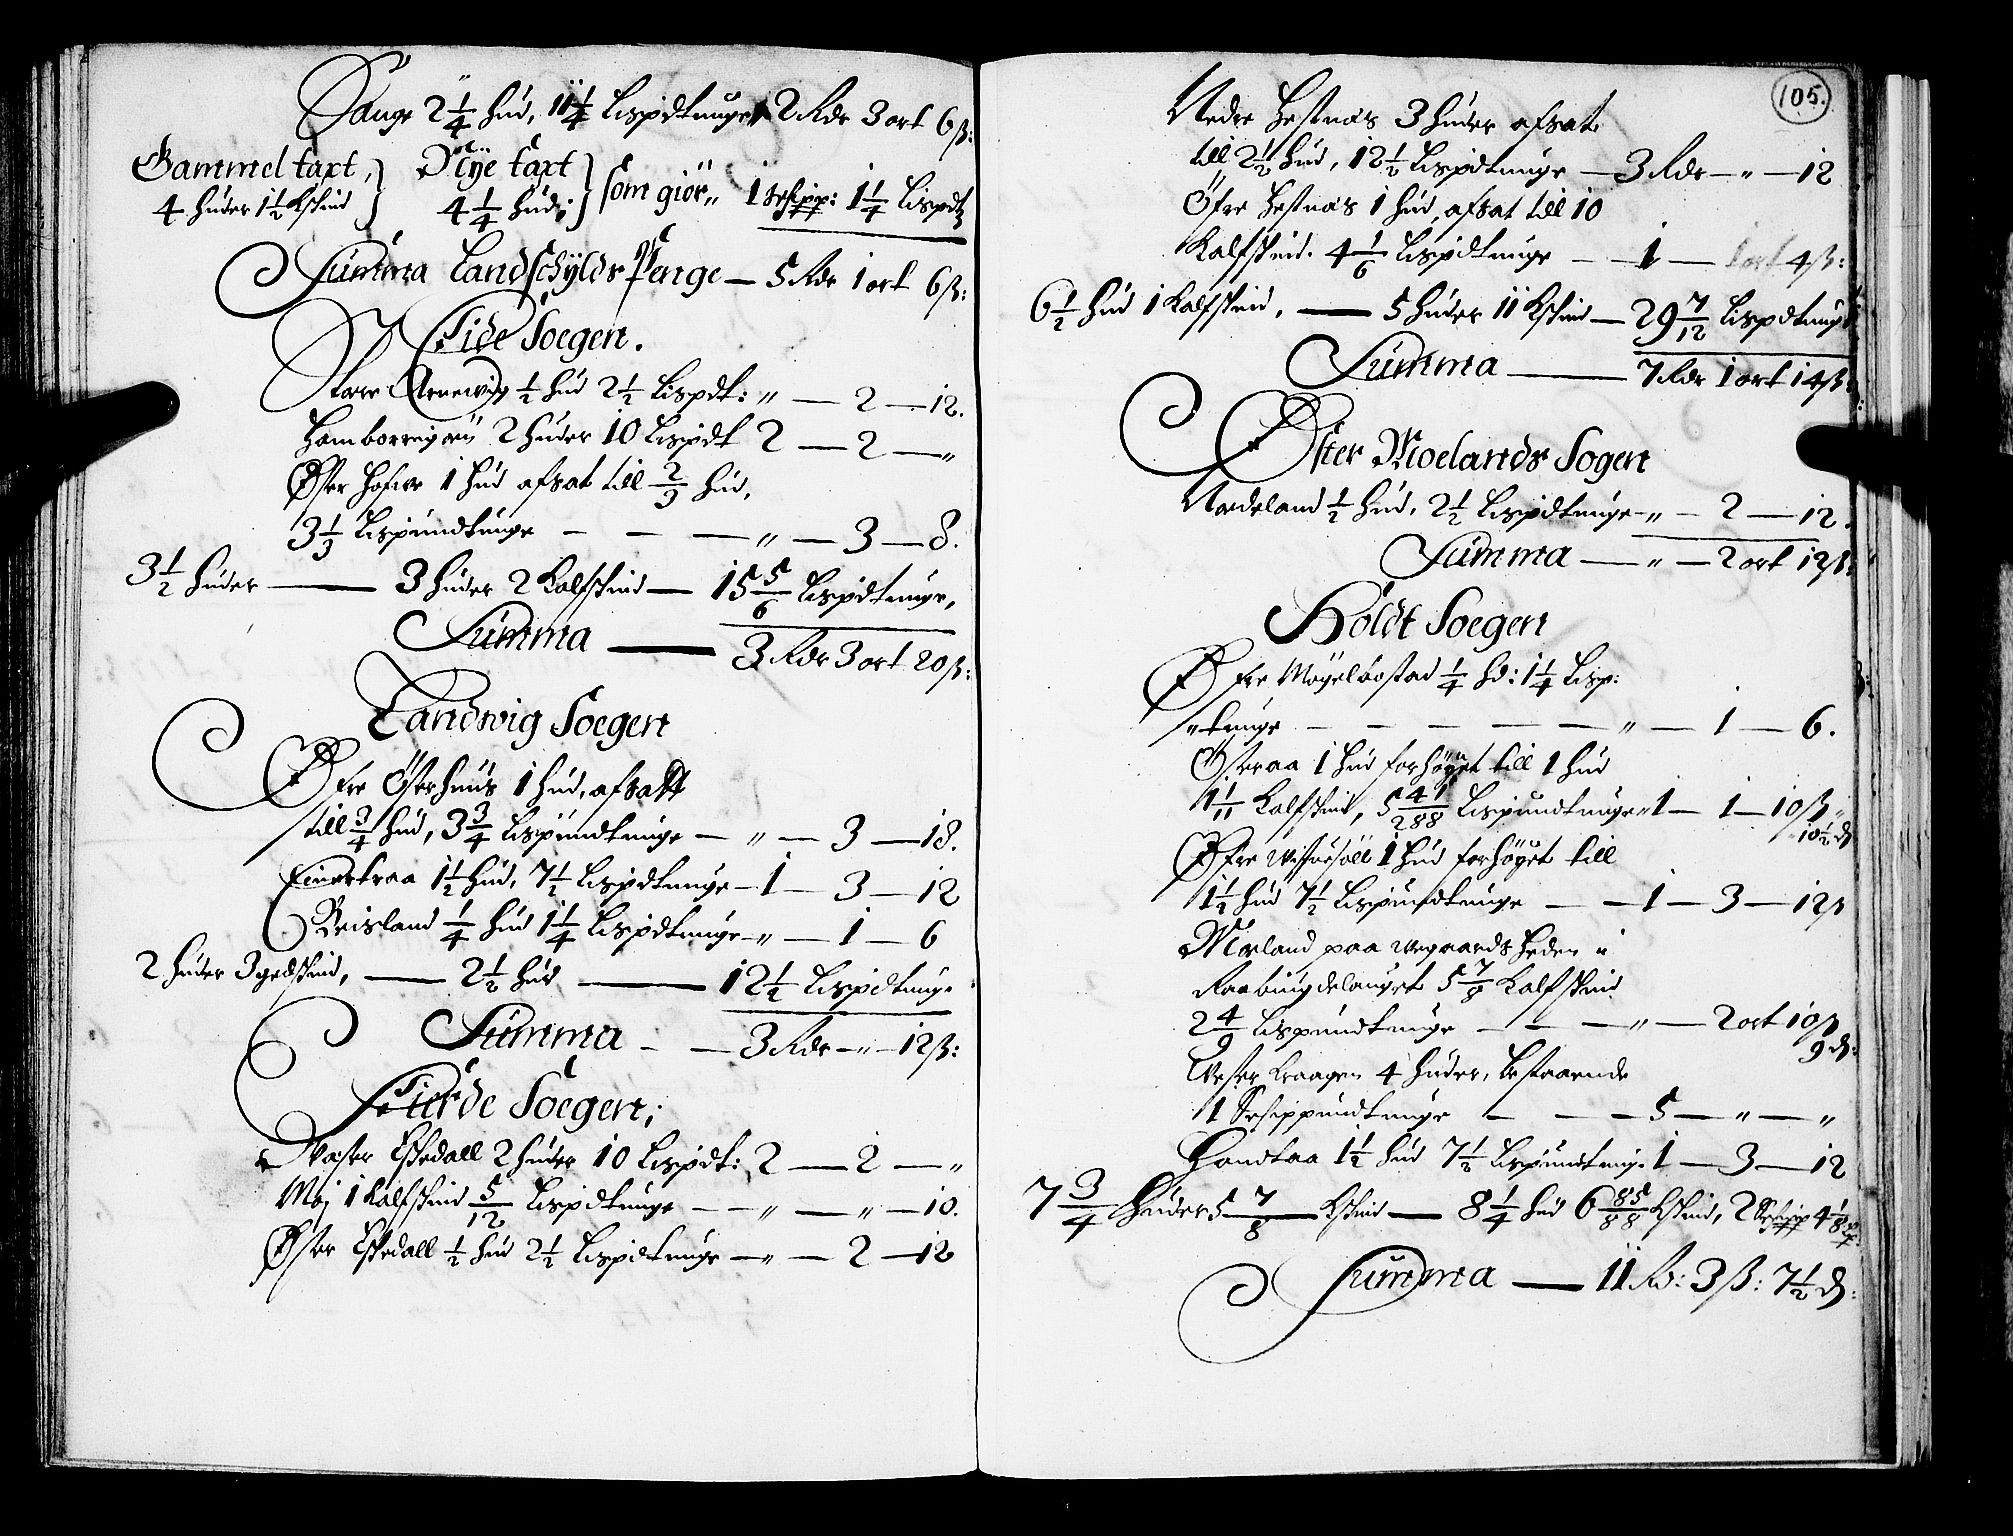 Sauge 2 1/4 Hud, 11 1/4 Lispdtunge 2 Rdr 3 ort 6 ß:
Gammel taxt, Nÿe taxt
4 Huder 1 1/2 Kskind } 4 1/4 Hud; } som giör,, 1 Schipp: 1 1/4 Lispdt
Summa Landschÿlds Penge — 5 Rdr 1 ort 6 ß:
Eide Soegen.
Store Arnewig 1/2 Hud 2 1/2 Lispdt: ,, — 2 — 12.
Homborrigöen 2 Huder 10 Lispdt 2 — 2 — ,,
Øster Hofwe 1 Hud afsat till 2/3 Hud,
3 1/3 Lispundtunge — — — ,, — 3 — 8.
3 1/2 Huder — 3 Huder 2 Kalfskind — 15 5/6 Lispdtunge,
Summa — 3 Rdr 3 ort 20 ß:
Landwig Soegen
Øfre Österhuus 1 Hud, afsatt
till 3/4 Hud, 3 3/4 Lispundtunge — ,, — 3 — 18.
1 1/2 Hud, 7 1/2 Lispdtunge — 1 — 3 — 12
Reisland 1/4 Hud 1 1/4 Lispdtunge — ,, — 1 — 6
2 Huder 3 gedskind, — 2 1/2 Hud — 12 1/2 Lispdtunge
Summa — — 3 Rdr — ,, — 12 ß:
Fierde Soegen;
Waster Eskedall 2 Huder 10 Lispdt: 2 — 2 — ,,
Moj 1 Kalfskind 5/12 Lispdtunge — — ,, — ,, — 10.
Øster Eskedall 1/2 Hud 2 1/2 Lispdtunge — ,, — 2 — 12
105.
Nedre Hestnæs 3 Huder afsat
till 2 1/2 Hud, 12 1/2 Lispdtunge — 3 Rdr — ,, — 12
Öfre Hestnæs 1 Hud, afsat till 10
Kalfskind. 4 1/6 Lispdtunge — — 1 — 1 ort 4 ß:
6 1/2 Hud 1 Kalfskind, — 5 Huder 11 Kskind — 29 7/12 Lispdtunge
Summa — 7 Rdr 1 ort 14 ß:
Øster Moelands Sogen
Nordeland 1/2 Hud, 2 1/2 Lispdtunge — ,, — 2 — 12.
Summa — ,, — 2 ort 12 ß:
Holdt Soegen
Øfre Mögelbostad 1/4 Hd: 1 1/4 Lisp:
,, tunge — — — — — ,, — 1 — 6.
Österaa 1 Hud forhöyet till 1 Hud
1 1/11 Kalfskind, 5 41/288 Lispundtunge ,, 1 — 1 — 10 ß
10 1/2 d
Øfre 1 Hud forhöyet till
1 1/2 Hud 7 1/2 Lispundtunge — — 1 — 3 — 12 ß
Morland paa Wegaardsheden i
Raabiugdelauget 5 7/8 Kalfskind
2 4/9 Lispundtunge — — — ,, — 2 ort 10 ß
9 d:
Wester Kraagen 4 Huder, bestaaende
1 Schippundtunge — — — 5 — ,, — ,,
1 1/2 Hud 7 1/2 Lispundtung: 1 — 3 — 12
7 3/4 Huder 5 7/8 Kskind — 8 1/4 Hud 6 85/88 Kskind, 2 Schipp 4 1/8 Lp:
Summa — 11 Rd: 3 ß: 7 1/2 d: